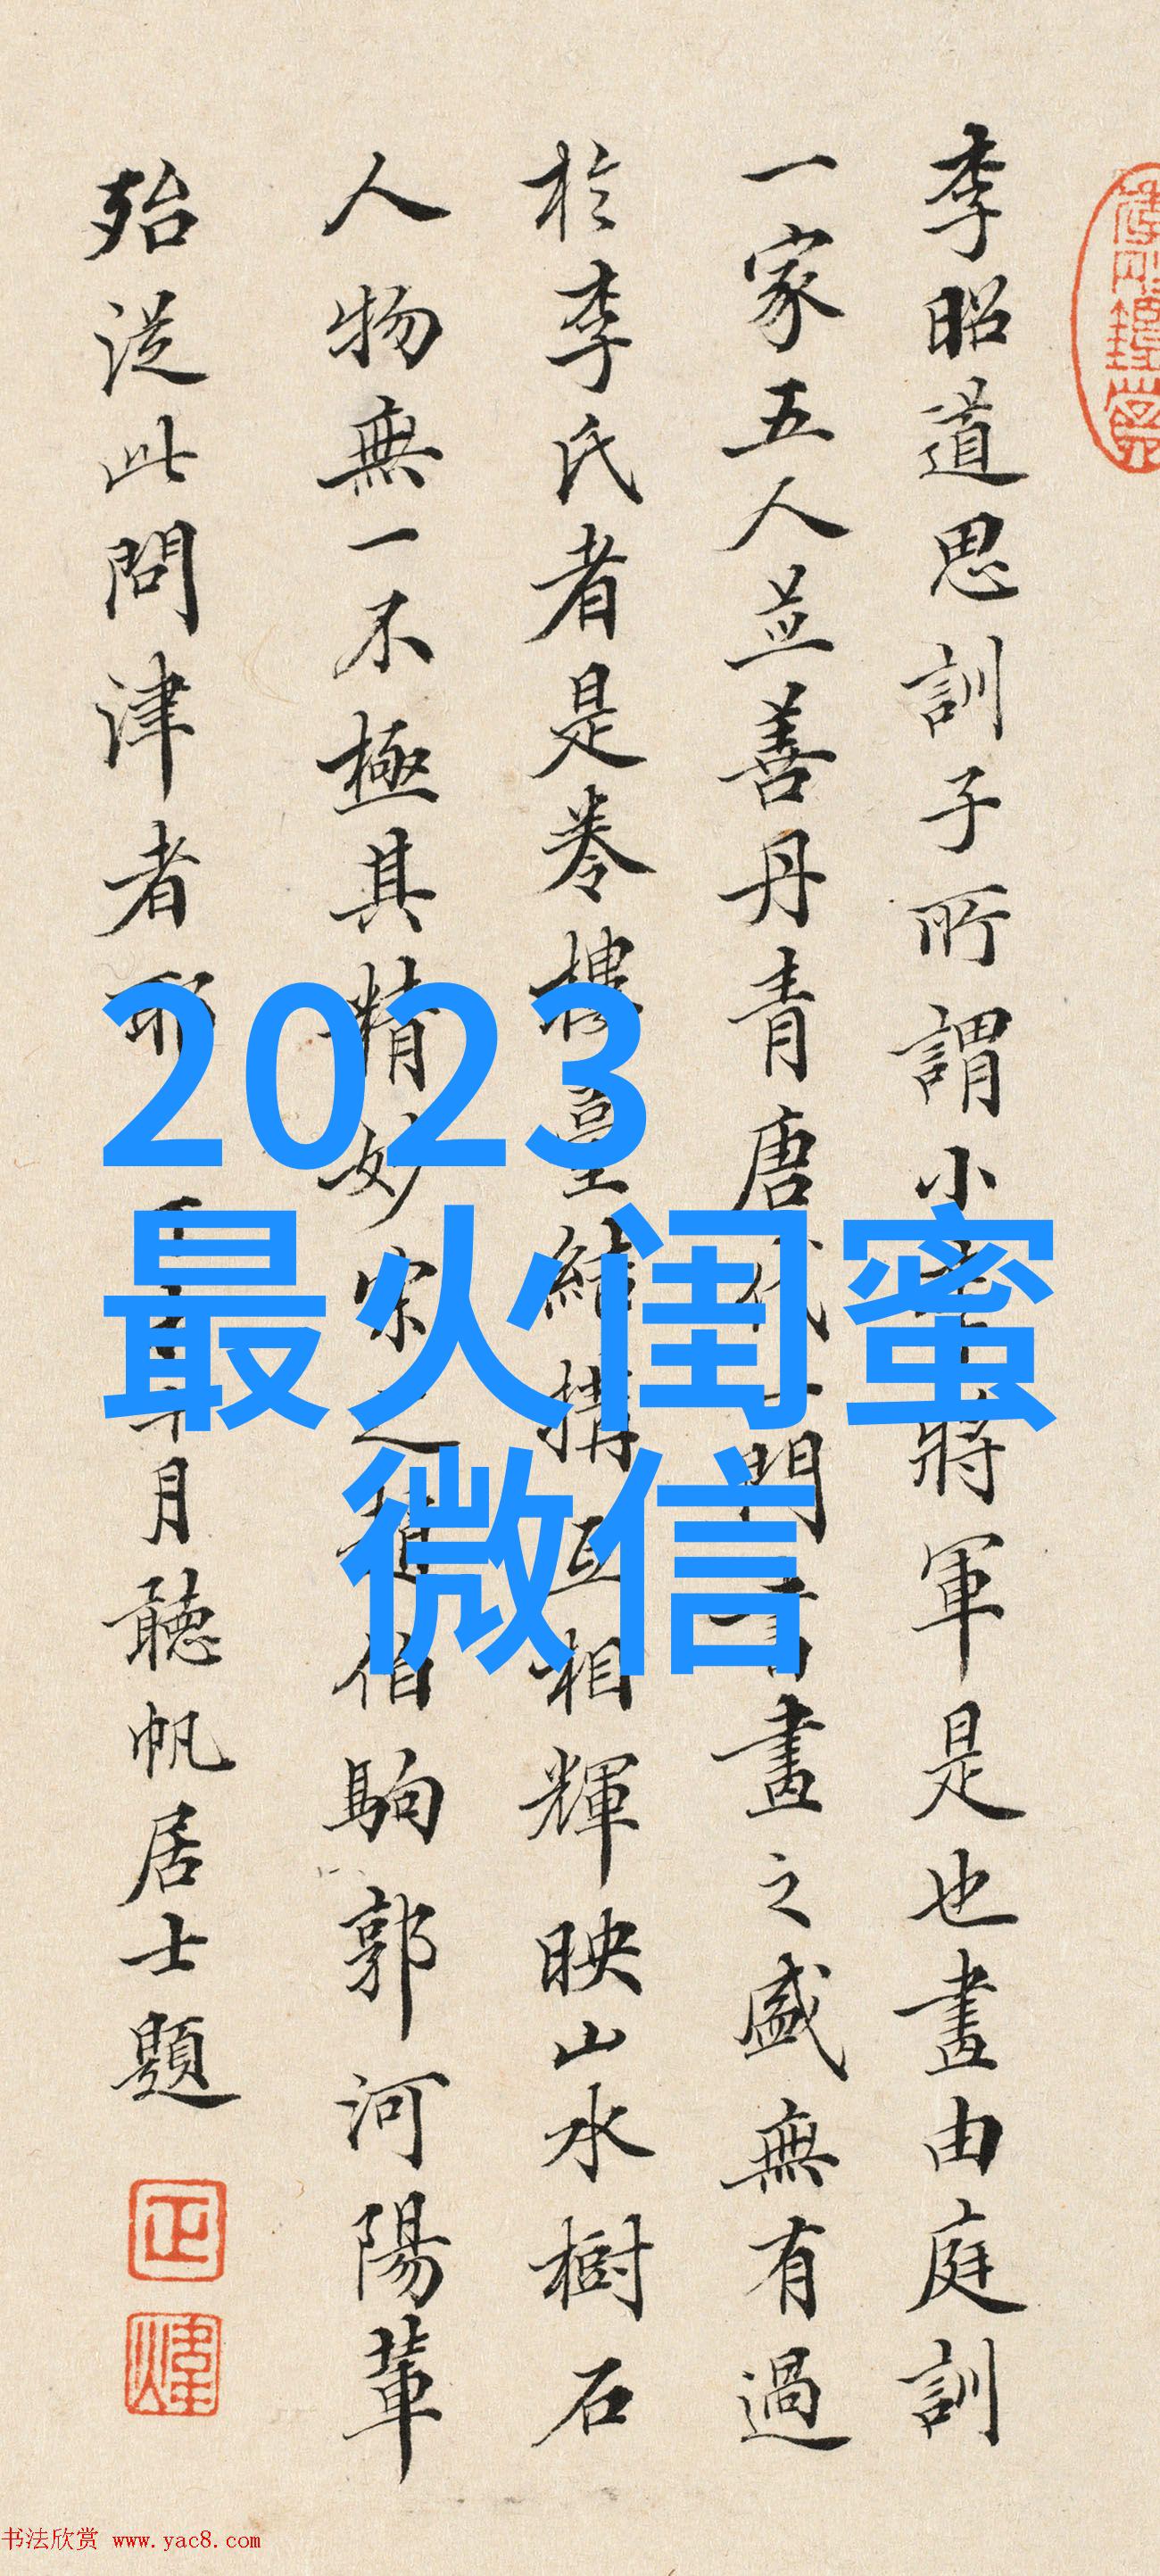 李昭道思訓子所謂小李將軍是也畫由庭訓
一家五人並善丹青唐代一門書畫之盛無有過
於李氏者是卷樓臺結構互相輝映山水樹石
人物無一不極其精妙宋之趙伯駒郭河陽輩
殆從此問津者耶 年月聽帆居士題
正
煒
2023
最火闺蜜
微信
书法欣赏 www.yac8.com